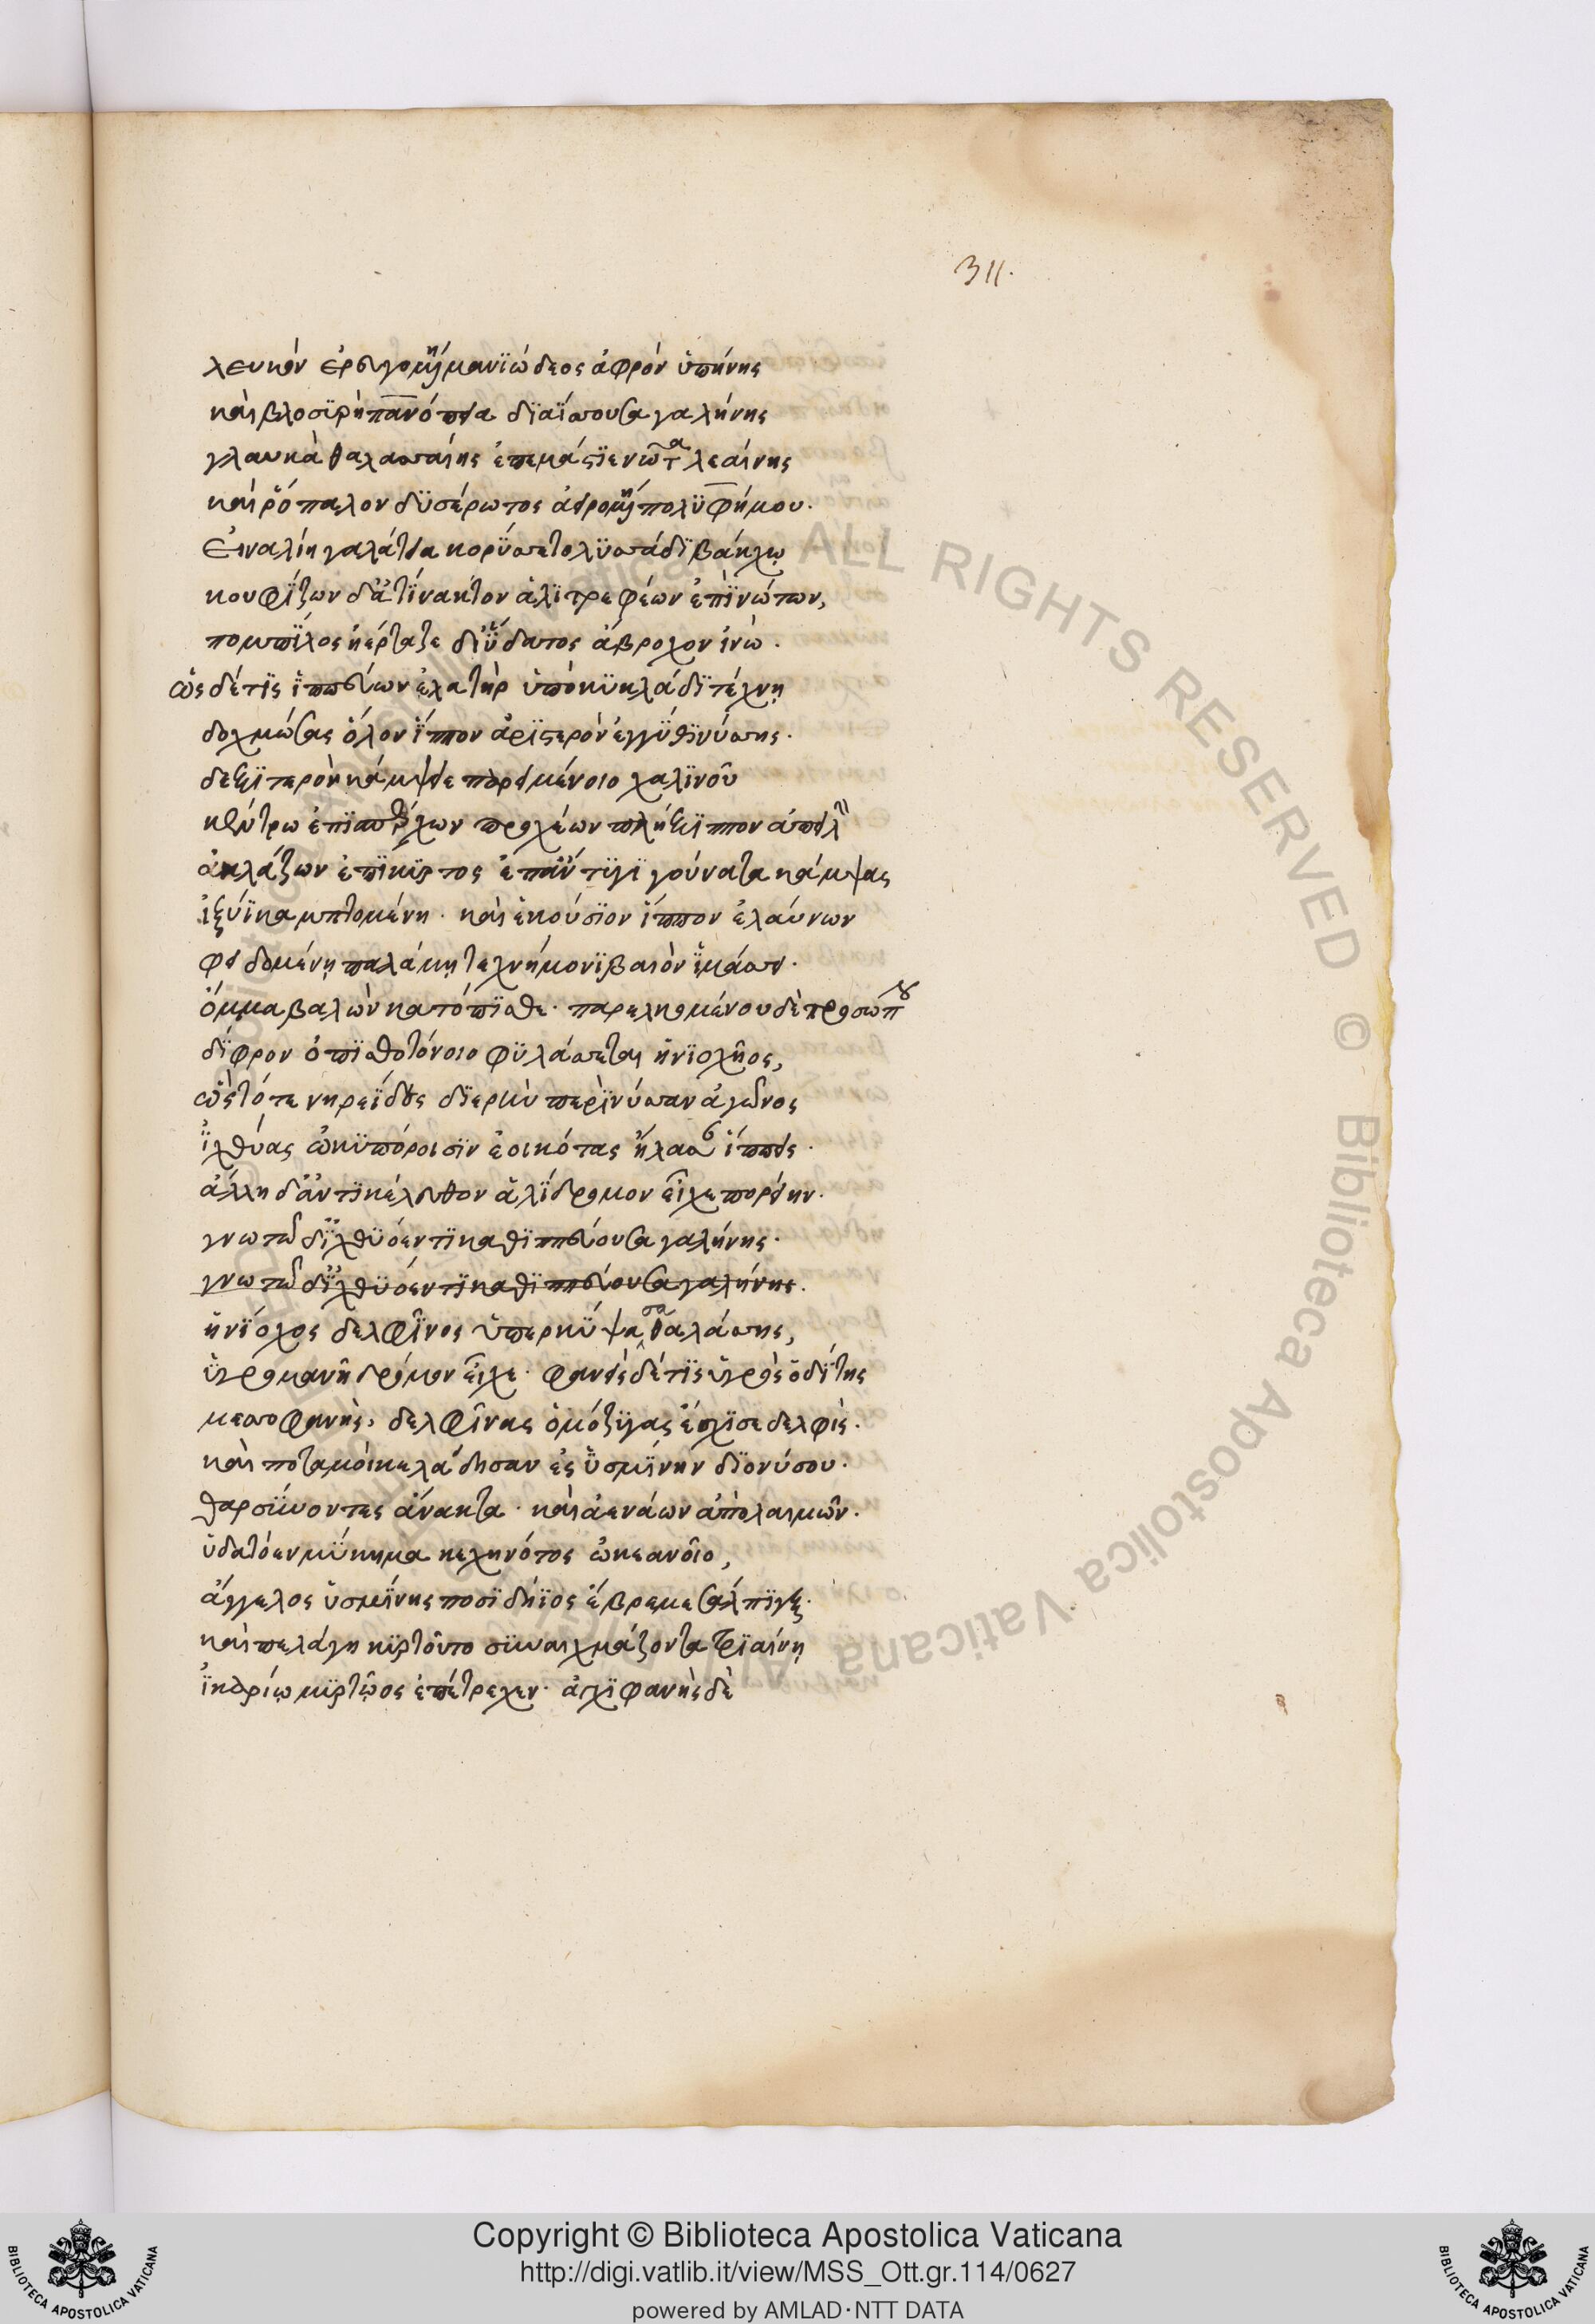 311.
λευκὸν ἐρευγομένη μανιώδεος ἀφρὸν ὑπήνης
καὶ βλοσυρὴ πανόπεια διαΐσσουσα γαλήνης
γλαυκὰ θαλασσαίης ἐπεμάστιε νῶτα λεαίνης
καὶ ῥόπαλον δυσέρωτος ἀειρομένη πολυφήμου.
Εἰναλίη γαλάτεια κορύσσετο λυσσάδι βάκχω
κουφίζων δ' ἀτίνακτον ἁλιτρεφέων ἐπὶ νώτων,
πομπίλος ἠέρταζε δι' ὕδατος ἄβροχον ἰνώ.
ὡς δέ τις ἱππεύων ἐλατὴρ ὑπὸ κυκλάδι τέχνη
δοχμώσας ὅλον ἵππον ἀριστερὸν ἐγγύθι νύσσης.
δεξιτερὸν κάμψειε παρειμένοιο χαλινοῦ
κέντρω ἐπισπέρχων προχέων πλήξιππον ἀπειλὴν
ὀκλάζων ἐπίκυρτος ἐπ' ἄντυγι γούνατα κάμψας
ἰξύϊ καμπτομένη. καὶ ἑκούσιον ἵππον ἐλαύνων
φειδομένη παλάμη τεχνήμονι βαιὸν ἱμάσσει.
ὄμμα βαλὼν κατόπισθε. παρελκομένου δὲ προσώπου
δίφρον ὀπισθοτόνοιο φυλάσσεται ἡνιοχῆος,
ὣς τότε νηρεΐδες διερὴν περὶ νύσσαν ἀγῶνος
ἰχθύας ὠκυπόροισιν ἐοικότας ἤλασαν ἵπποις.
ἄλλη δ' ἀντικέλευθον ἁλίδρομον εἶχε πορείην.
νώτω δ' ἰχθυόεντι καθιππεύουσα γαλήνης.
νώτω δ' ἰχθυόεντι καθιππεύουσα γαλήνης.
ἡνίοχος δελφῖνος ὑπερκύψασα θαλάσσης,
ὑγρομανῆ δρόμον εἶχε. φανεὶς δέ τις ὑγρὸς ὁδίτης
μεσσοφανὴς, δελφῖνας ὁμόζυγας ἔσχισε δελφίς.
καὶ ποταμοὶ κελάδησαν ἐς ὑσμίνην διονύσου.
θαρσύνοντες ἄνακτα. καὶ ἀενάων ἀπὸ λαιμῶν.
ὑδατόεν μύκημα κεχηνότος ὠκεανοῖο,
ἄγγελος ὑσμίνης ποσιδήϊος ἔβρεμε σάλπιγξ.
καὶ πελάγη κυρτοῦτο συναιχμάζοντα τριαίνη
ἰκαρίω μυρτῶος ἐπέτρεχεν. ἀγχιφανὴς δὲ